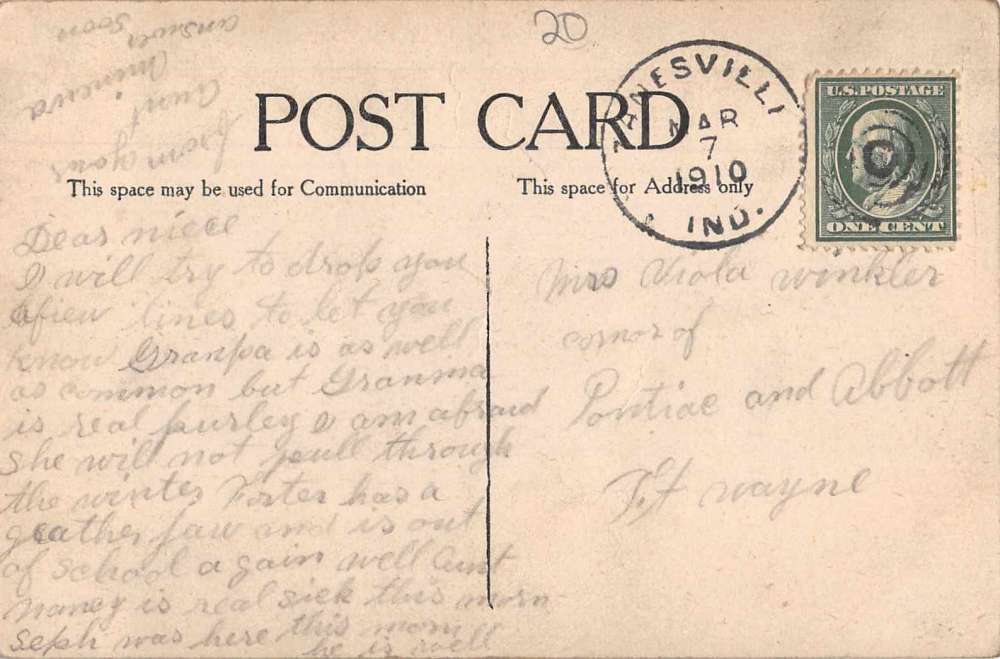 20
POST CARD
This space may be used for Communication
This space for Address only
MAR
7
1910
IND.
U.S. POSTAGE
ONE CENT
Dear niece
I will try to drop you
a fiew lines to let you
know Granpa is as well
as common but Granma
is real purley I am afraid
she will not pull through
the winter Forter has a
geather jaw and is out
of school a gain well Aunt
Nancy is real sick this morn
seph was here this morn
he is well
from your
Aunt
Minerva
answer
soon
Mrs Viola winkler
cornor of
Pontiac and Abbott
Ft wayne